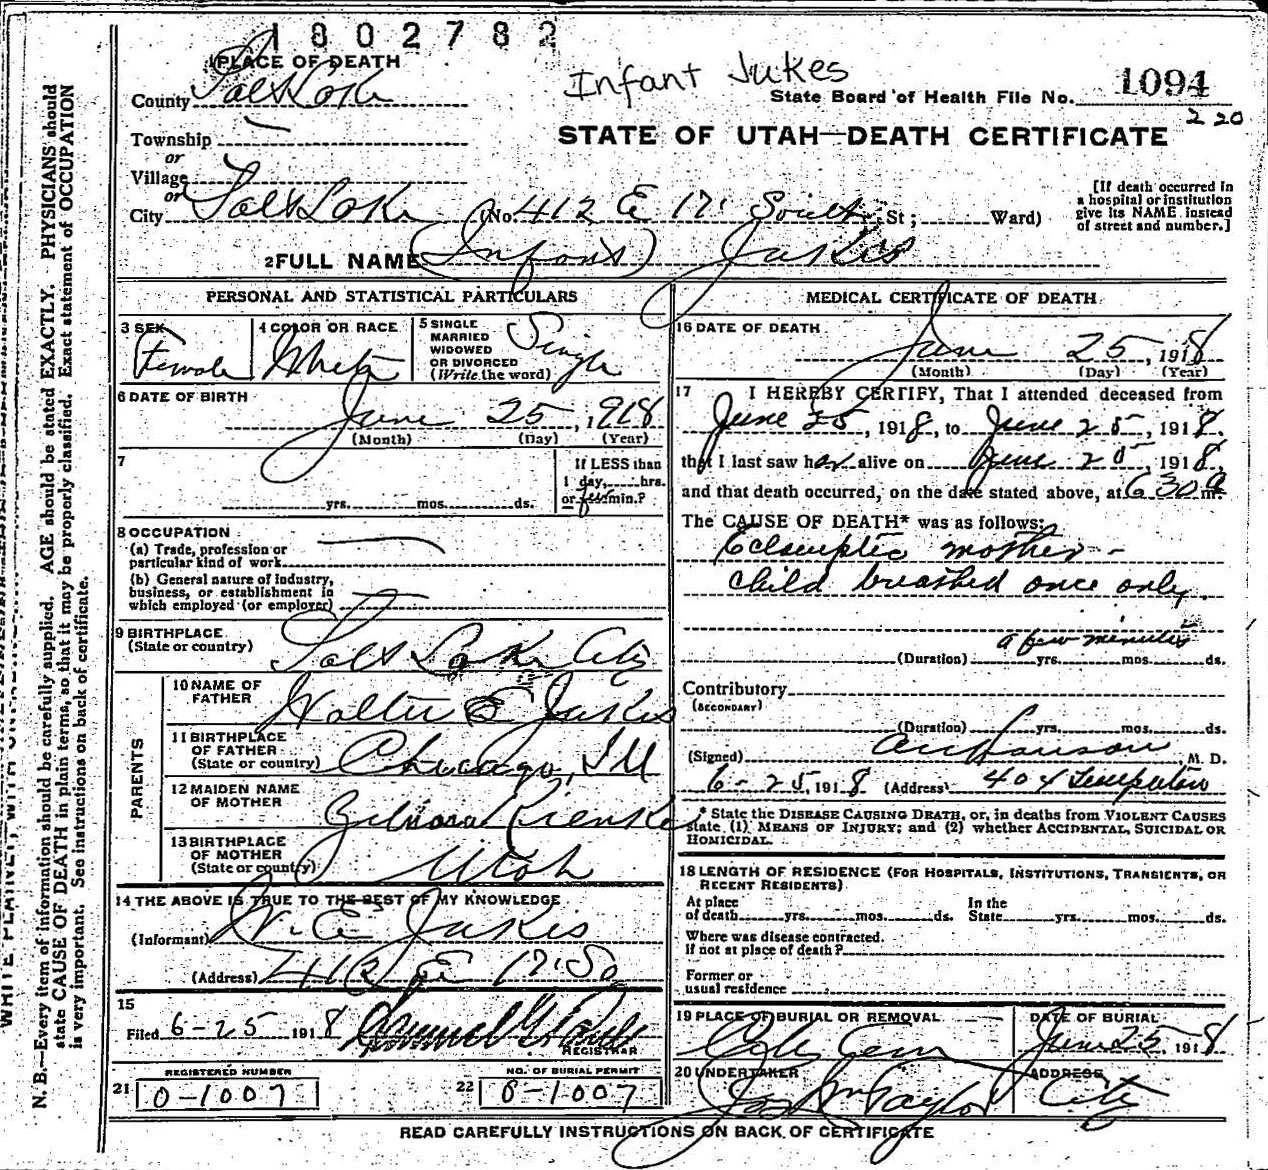 1802782
1 PLACE OF DEATH
Infant Jukes
County Salt Lake
State Board of Health File No. 1094
220
Township
STATE OF UTAH—DEATH CERTIFICATE
or
Village
or
City Salt Lake (No. 412 E 17' South St; Ward)
[If death occurred in
a hospital or institution
give its NAME instead
of street and number.]
2 FULL NAME (Infant) Jukes
PERSONAL AND STATISTICAL PARTICULARS
3 SEX Female
4 COLOR OR RACE White
5 SINGLE
MARRIED
WIDOWED
OR DIVORCED
(Write the word) Single
6 DATE OF BIRTH
June 25, 1918
(Month) (Day) (Year)
7
yrs. mos. ds.
If LESS than
1 day, hrs.
or few min.?
8 OCCUPATION
(a) Trade, profession or
particular kind of work
(b) General nature of industry,
business, or establishment in
which employed (or employer)
9 BIRTHPLACE
(State or country) Salt Lake City
PARENTS
10 NAME OF
FATHER Walter E Jukes
11 BIRTHPLACE
OF FATHER
(State or country) Chicago, Ill
12 MAIDEN NAME
OF MOTHER Rienke
13 BIRTHPLACE
OF MOTHER
(State or country) Utah
14 THE ABOVE IS TRUE TO THE BEST OF MY KNOWLEDGE
(Informant) W. E. Jukes
(Address) 412 E 17' So
15
Filed 6-25 1918
REGISTRAR
REGISTERED NUMBER
21 0-1007
NO. OF BURIAL PERMIT
22 8-1007
MEDICAL CERTIFICATE OF DEATH
16 DATE OF DEATH
June 25, 1918
(Month) (Day) (Year)
17 I HEREBY CERTIFY, That I attended deceased from
June 25, 1918, to June 25, 1918,
that I last saw her alive on June 25, 1918,
and that death occurred, on the date stated above, at 6 30 a m.
The CAUSE OF DEATH* was as follows:
Eclamptic mother -
child breathed once only.
a few minutes
(Duration) yrs. mos. ds.
Contributory
(SECONDARY)
(Duration) yrs. mos. ds.
(Signed) M. D.
6-25, 1918 (Address) 404 Templeton
* State the DISEASE CAUSING DEATH, or, in deaths from VIOLENT CAUSES
state (1) MEANS OF INJURY; and (2) whether ACCIDENTAL, SUICIDAL OR
HOMICIDAL.
18 LENGTH OF RESIDENCE (FOR HOSPITALS, INSTITUTIONS, TRANSIENTS, OR
RECENT RESIDENTS)
At place
of death yrs. mos. ds.
In the
State yrs. mos. ds.
Where was disease contracted.
if not at place of death?
Former or
usual residence
19 PLACE OF BURIAL OR REMOVAL
City Cem
DATE OF BURIAL
June 25, 1918
20 UNDERTAKER
Jos Wm Taylor
ADDRESS
City
READ CAREFULLY INSTRUCTIONS ON BACK OF CERTIFICATE
N. B.—Every item of information should be carefully supplied. AGE should be stated EXACTLY. PHYSICIANS should
state CAUSE OF DEATH in plain terms, so that it may be properly classified. Exact statement of OCCUPATION
is very important. See instructions on back of certificate.